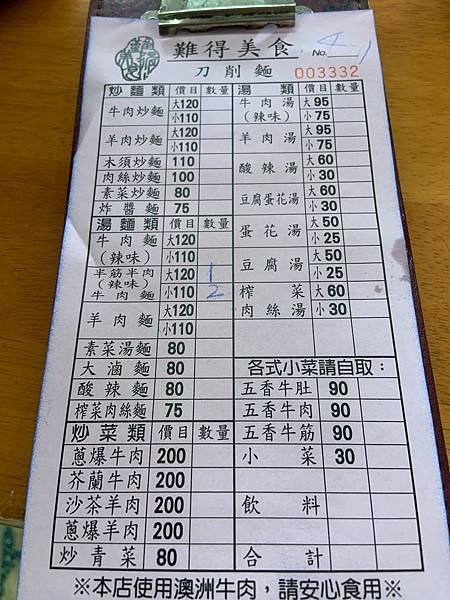 難得美食 No. 4-1
刀削麵 003332
炒麵類 價目 數量
牛肉炒麵 大120
小110
羊肉炒麵 大120
小110
木須炒麵 110
肉絲炒麵 100
素菜炒麵 80
炸醬麵 75
湯麵類 價目 數量
牛肉麵 大120
(辣味) 小110
半筋半肉 大120 1
(辣味)
牛肉麵 小110 2
羊肉麵 大120
小110
素菜湯麵 80
大滷麵 80
酸辣麵 80
榨菜肉絲麵 75
炒菜類 價目 數量
蔥爆牛肉 200
芥蘭牛肉 200
沙茶羊肉 200
蔥爆羊肉 200
炒青菜 80
湯類 價目 數量
牛肉湯 大95
(辣味) 小75
羊肉湯 大95
小75
酸辣湯 大60
小30
豆腐蛋花湯 大60
小30
蛋花湯 大50
小25
豆腐湯 大50
小25
榨菜 大60
肉絲湯 小30
各式小菜請自取:
五香牛肚 90
五香牛肉 90
五香牛筋 90
小菜 30
飲料
合計
※本店使用澳洲牛肉，請安心食用※